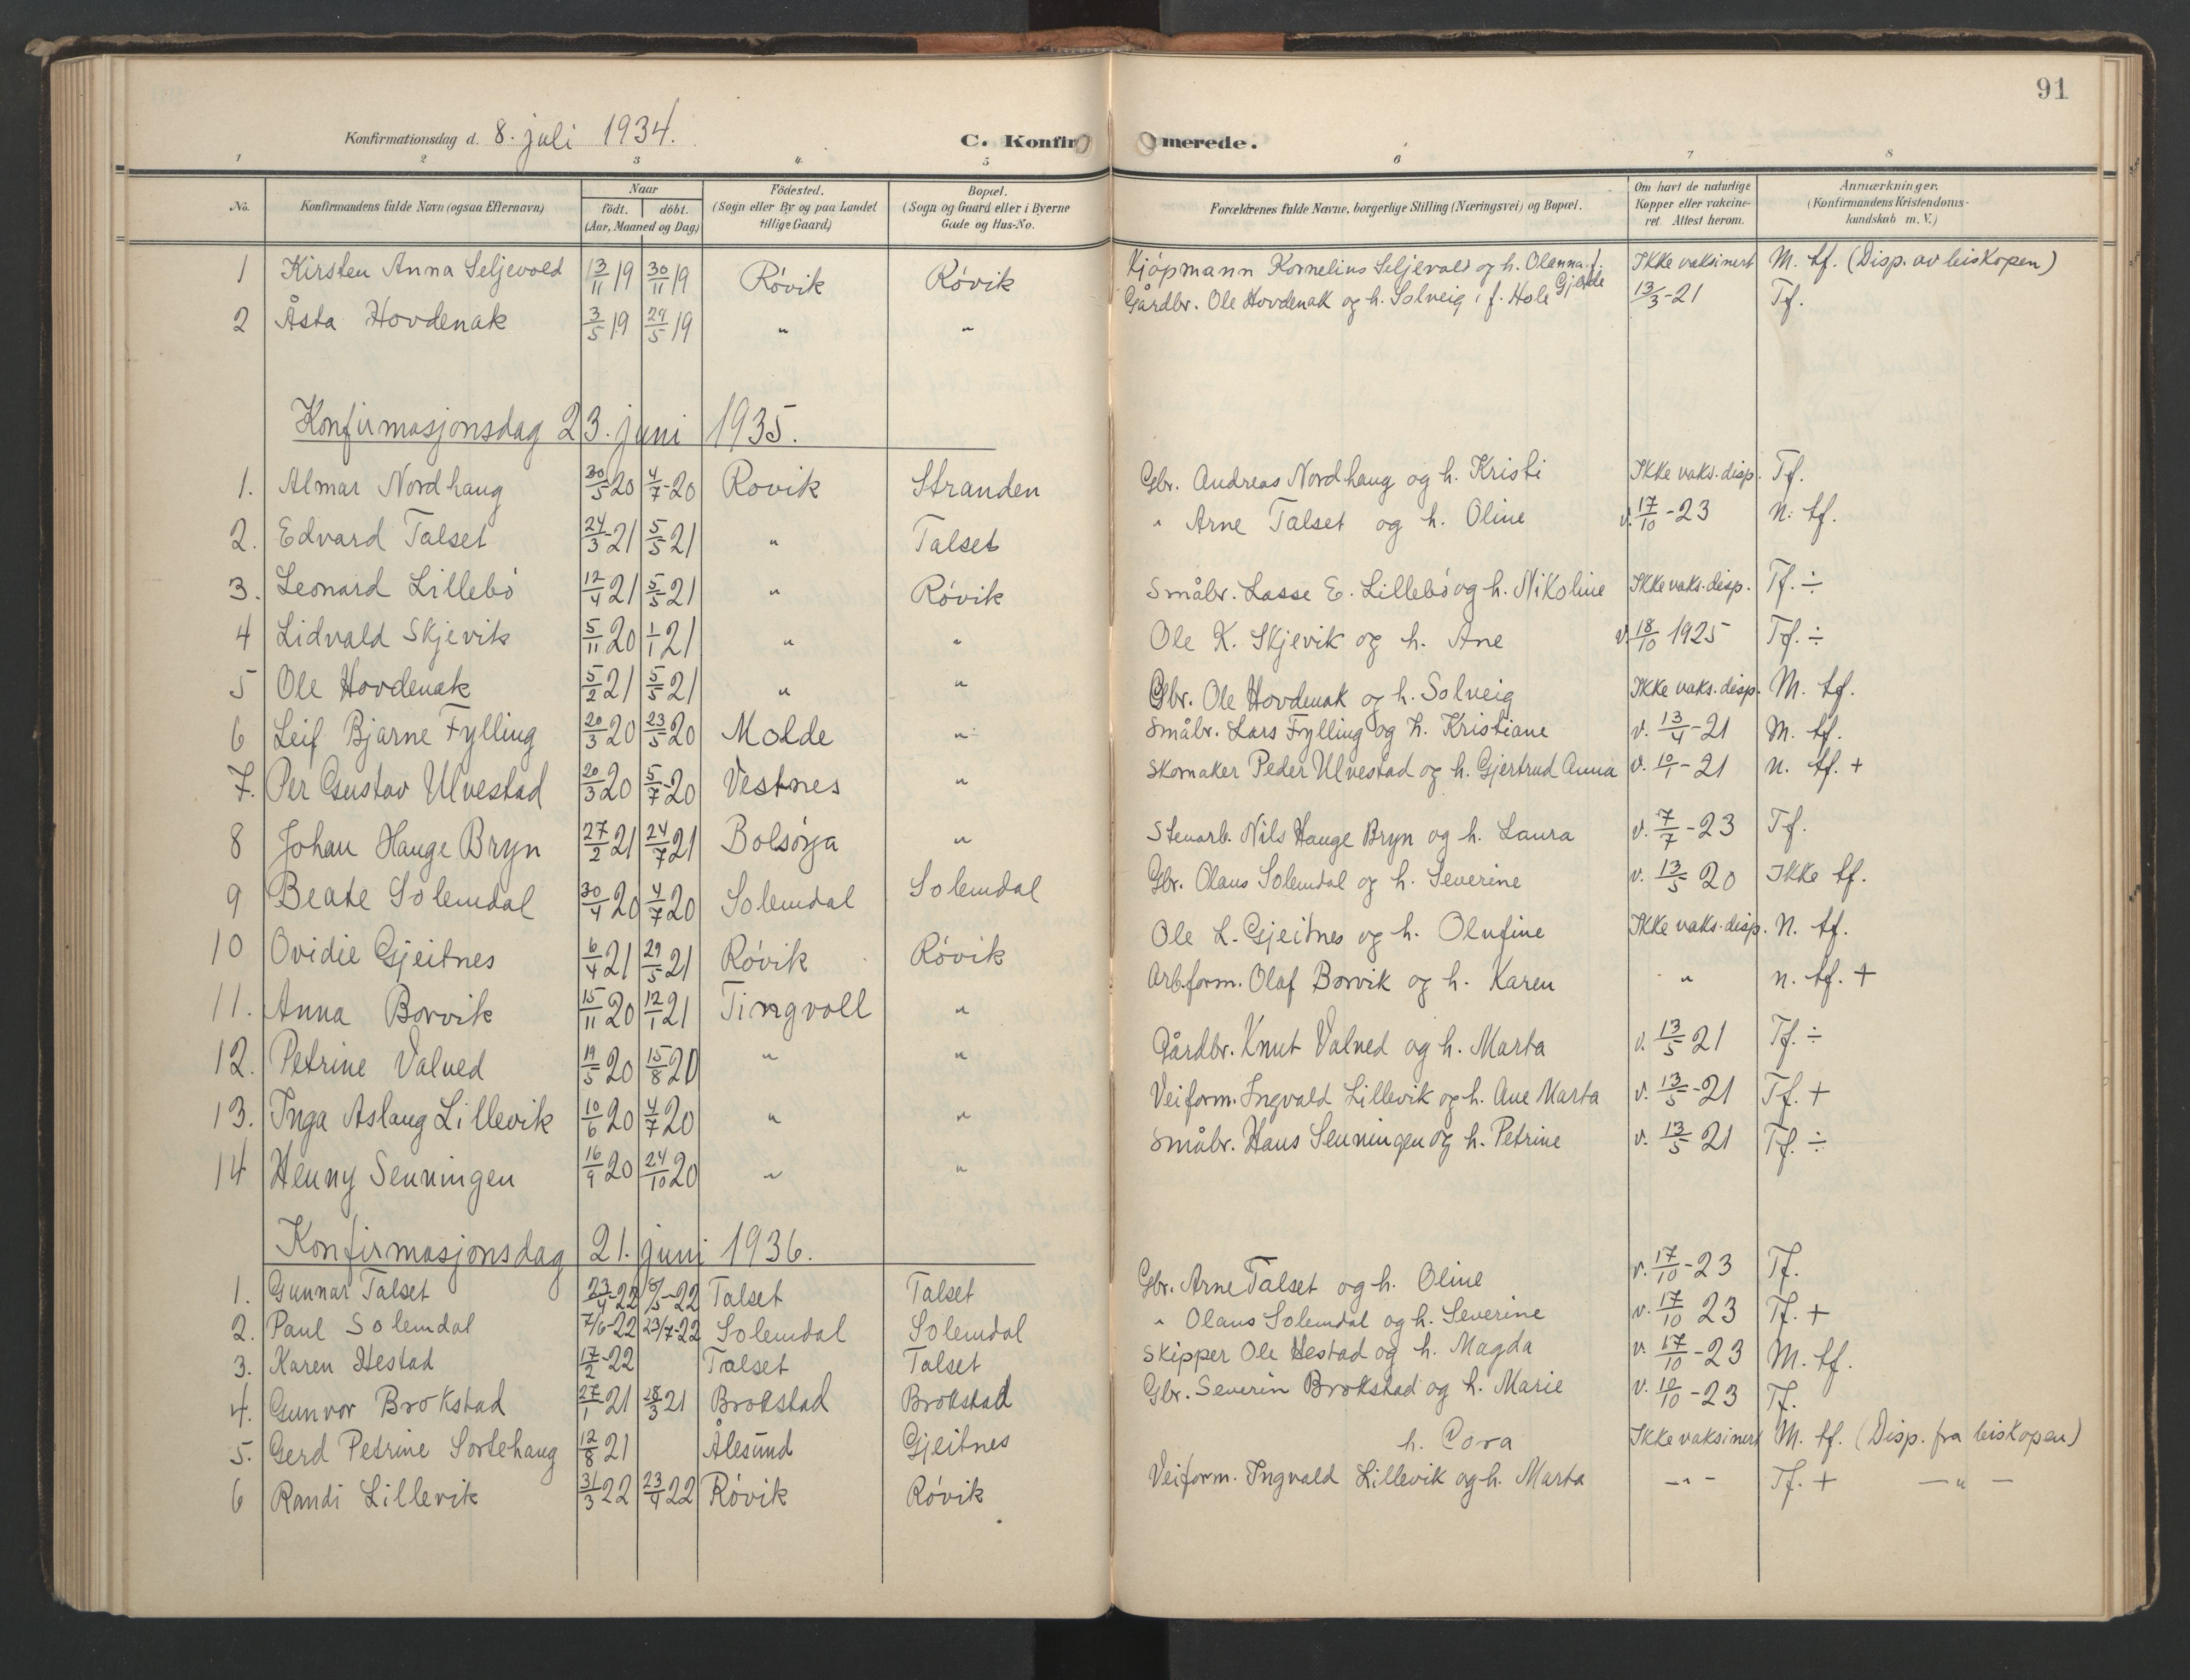 91
Konfirmationsdag d. 8. juli 1934.
C. Konfirmerede.
1 2 3 4 5 6 7 8
No. Konfirmandens fulde Navn (ogsaa Efternavn) Naar födt. döbt. (Aar, Maaned og Dag) Födested. (Sogn eller By og paa Landet tillige Gaard) Bopæl. (Sogn og Gaard eller i Byerne Gade og Hus-No. Forældrenes fulde Navne, borgerlige Stilling (Næringsvei) og Bopæl. Om havt de naturlige Kopper eller vakcineret. Attest herom. Anmærkninger. (Konfirmandens Kristendomskundskab m. V.)
1 Kirsten Anna Seljevold 13/11 19 30/11 19 Róvik Róvik Kjöpmann Kornelius Seljevold og h. Olanna f. Gjerde Ikke vaksinert M. tf. (Disp. av biskopen)
2 Åsta Hovdenak 3/5 19 29/5 19 " " Gårdbr. Ole Hovdenak og h. Solveig, f. Hole 13/3-21 Tf.
Konfirmasjonsdag 23. juni 1935.
1. Almar Nordhaug 30/5 20 4/7-20 Rovik Stranden Gbr. Andreas Nordhaug og h. Kristi Ikke vaks. disp. Tf.
2. Edvard Talset 24/3-21 5/5 21 " Talset " Arne Talset og h. Oline v. 17/10-23 N. tf.
3. Leonard Lillebó 12/4 21 5/5 21 " Róvik Småbr. Lasse E. Lillebó og h. Nikoline Ikke vaks. disp. Tf. ÷
4 Lidvald Skjevik 5/11 20 1/1 21 " " Ole K. Skjevik og h. Ane v. 18/10 1925 Tf. ÷
5 Ole Hovdenak 5/2 21 5/5 21 " " Gbr. Ole Hovdenak og h. Solveig Ikke vaks. disp. M. tf.
6 Leif Bjarne Fylling 20/3 20 23/5 20 Molde " Småbr. Lars Fylling og h. Kristiane v. 13/4-21 M. tf.
7. Per Gustav Ulvestad 20/3 20 5/7-20 Vestnes " Skomaker Peder Ulvestad og h. Gjertrud Anna v. 10/1-21 N. tf. +
8 Johan Hauge Bryn 27/2 21 24/7 21 Bolsóya " Stenarb. Nils Hauge Bryn og h. Laura v. 7/7-23 Tf.
9 Beate Solemdal 30/4 20 4/7 20 Solemdal Solemdal Gbr. Olaus Solemdal og h. Severine v. 13/5 20 Ikke tf.
10 Ovidie Gjeitnes 6/4 21 29/5 21 Róvik Róvik Ole L. Gjeitnes og h. Olufine Ikke vaks. disp. N. tf.
11. Anna Borvik 15/11 20 12/1 21 Tingvoll " Arb.form. Olaf Borvik og h. Karen " N. tf. +
12. Petrine Valved 19/5 20 15/8 20 " " Gårdbr. Knut Valved og h. Marta v. 13/5 21 Tf. ÷
13. Inga Aslaug Lillevik 10/6 20 4/7 20 " " Veiform. Ingvald Lillevik og h. Ane Marta v. 13/5-21 Tf. +
14 Henny Senningen 16/9 20 24/10 20 " " Småbr. Hans Senningen og h. Petrine v. 13/5 21 Tf. ÷
Konfirmasjonsdag 21. juni 1936.
1. Gunnar Talset 23/4-22 /5-22 Talset Talset Gbr. Arne Talset og h. Oline v. 17/10-23 Tf.
2. Paul Solemdal 7/6-22 23/7-22 Solemdal Solemdal " Olaus Solemdal og h. Severine v. 17/10 23 Tf. +
3. Karen Hestad 17/2-22 Talset Talset Skipper Ole Hestad og h. Magda v. 17/10-23 M. tf.
4. Gunvor Brokstad 27/1-21 28/3 21 Brokstad Brokstad Gbr. Severin Brokstad og h. Marie v. 10/10-23 Tf.
5. Gerd Petrine Sortehaug 12/8 21 Ålesund Gjeitnes h. Cora Ikke vaksinert M. tf. (Disp. fra biskopen)
6 Randi Lillevik 31/3 22 23/4 22 Róvik Róvik Veiform. Ingvald Lillevik og h. Marta - " - Tf. + - " -